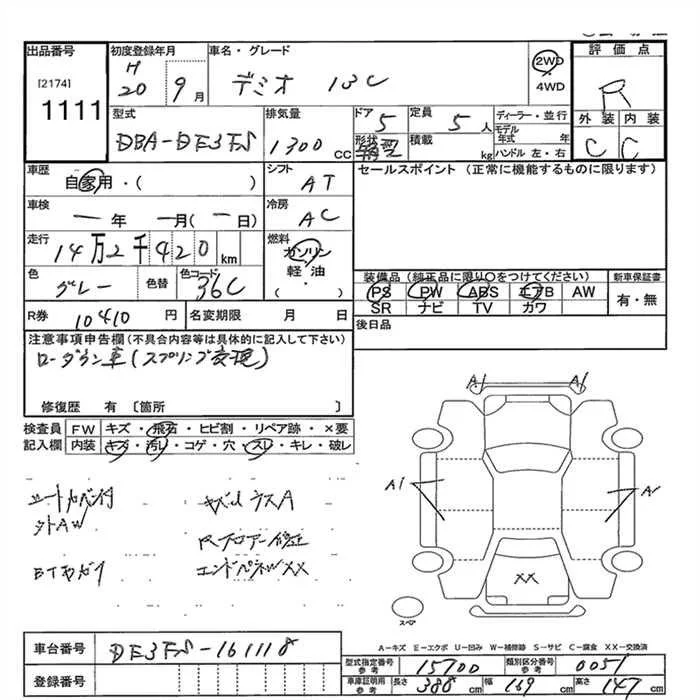 出品番号 初度登録年月 車名・グレード 評価点
[2174] H 2WD
1111 20 9月 デミオ 13C 4WD R
型式 排気量 ドア 定員 ディーラー・並行 外装 内装
DBA-DE3FS 1300CC 5 5人 モデル年式 年 C C
形状 積載 kg ハンドル 左・右
車歴 シフト セールスポイント (正常に機能するものに限ります)
自家用・( ) AT
車検 冷房
ー年 ー月(ー日) AC
走行 燃料
14万2千420km ガソリン
軽油・( )
色 グレー 色替 色コード 36C
装備品 (純正品に限り○をつけてください) 新車保証書
PS PW ABS エアB AW 有・無
SR ナビ TV カワ
R券 10410円 名変期限 月 日
後日品
注意事項申告欄(不具合内容等は具体的に記入して下さい)
ローダウン車(スプリング交換)
修復歴 有 〔箇所 〕
検査員 FW キズ・飛石・ヒビ割・リペア跡・×要
記入欄 内装 キズ・汚レ・コゲ・穴・スレ・キレ・破レ
A1 A1
A1 A1
シートカバー付
外AW
Rフロアー修正
エンドパネルXX
XX
スペア
A-キズ E-エクボ U-凹み W-補修跡 S-サビ C-腐食 XX-交換済
車台番号 DE3FS-161118
登録番号
型式指定番号 参考 15700 類別区分番号 参考 0051
車庫証明用 参考 長さ 388cm 幅 169cm 高さ 147cm